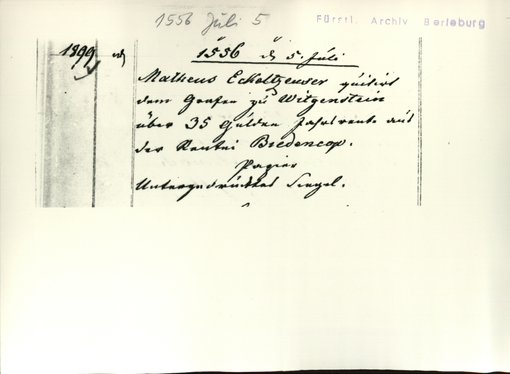 1556 Juli 5
Fürstl. Archiv Berleburg
1899
1556 d 5. Juli
Matheus quitirt
dem Grafen zu Witgenstein
über 35 Gulden Jahrrente aus
der Rentei Bredencop.
Papier
Untergedrücktes Siegel.